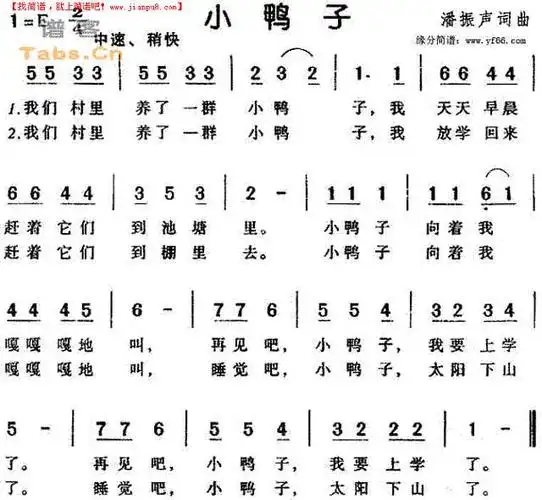 【找简谱，就上简谱吧！www.jianpu8.com】
小鸭子
1=E 2/4
潘振声词曲
中速、稍快
谱客
Tabs.Cn
缘分简谱：www.yf66.com
5 5 3 3 | 5 5 3 3 | 2 3 2 | 1. 1 | 6 6 4 4 |
1.我们 村里 养了 一群 小鸭 子，我 天天 早晨
2.我们 村里 养了 一群 小鸭 子，我 放学 回来
6 6 4 4 | 3 5 3 | 2 - | 1 1 1 | 1 1 6 1 |
赶着 它们 到池塘 里。 小鸭子 向着我
赶着 它们 到棚里 去。 小鸭子 向着我
4 4 4 5 | 6 - | 7 7 6 | 5 5 4 | 3 2 3 4 |
嘎嘎 嘎地 叫， 再见吧， 小鸭子， 我要 上学
嘎嘎 嘎地 叫， 睡觉吧， 小鸭子， 太阳 下山
5 - | 7 7 6 | 5 5 4 | 3 2 2 2 | 1 - ‖
了。 再见吧， 小鸭子， 我要 上学 了。
了。 睡觉吧， 小鸭子， 太阳 下山 了。